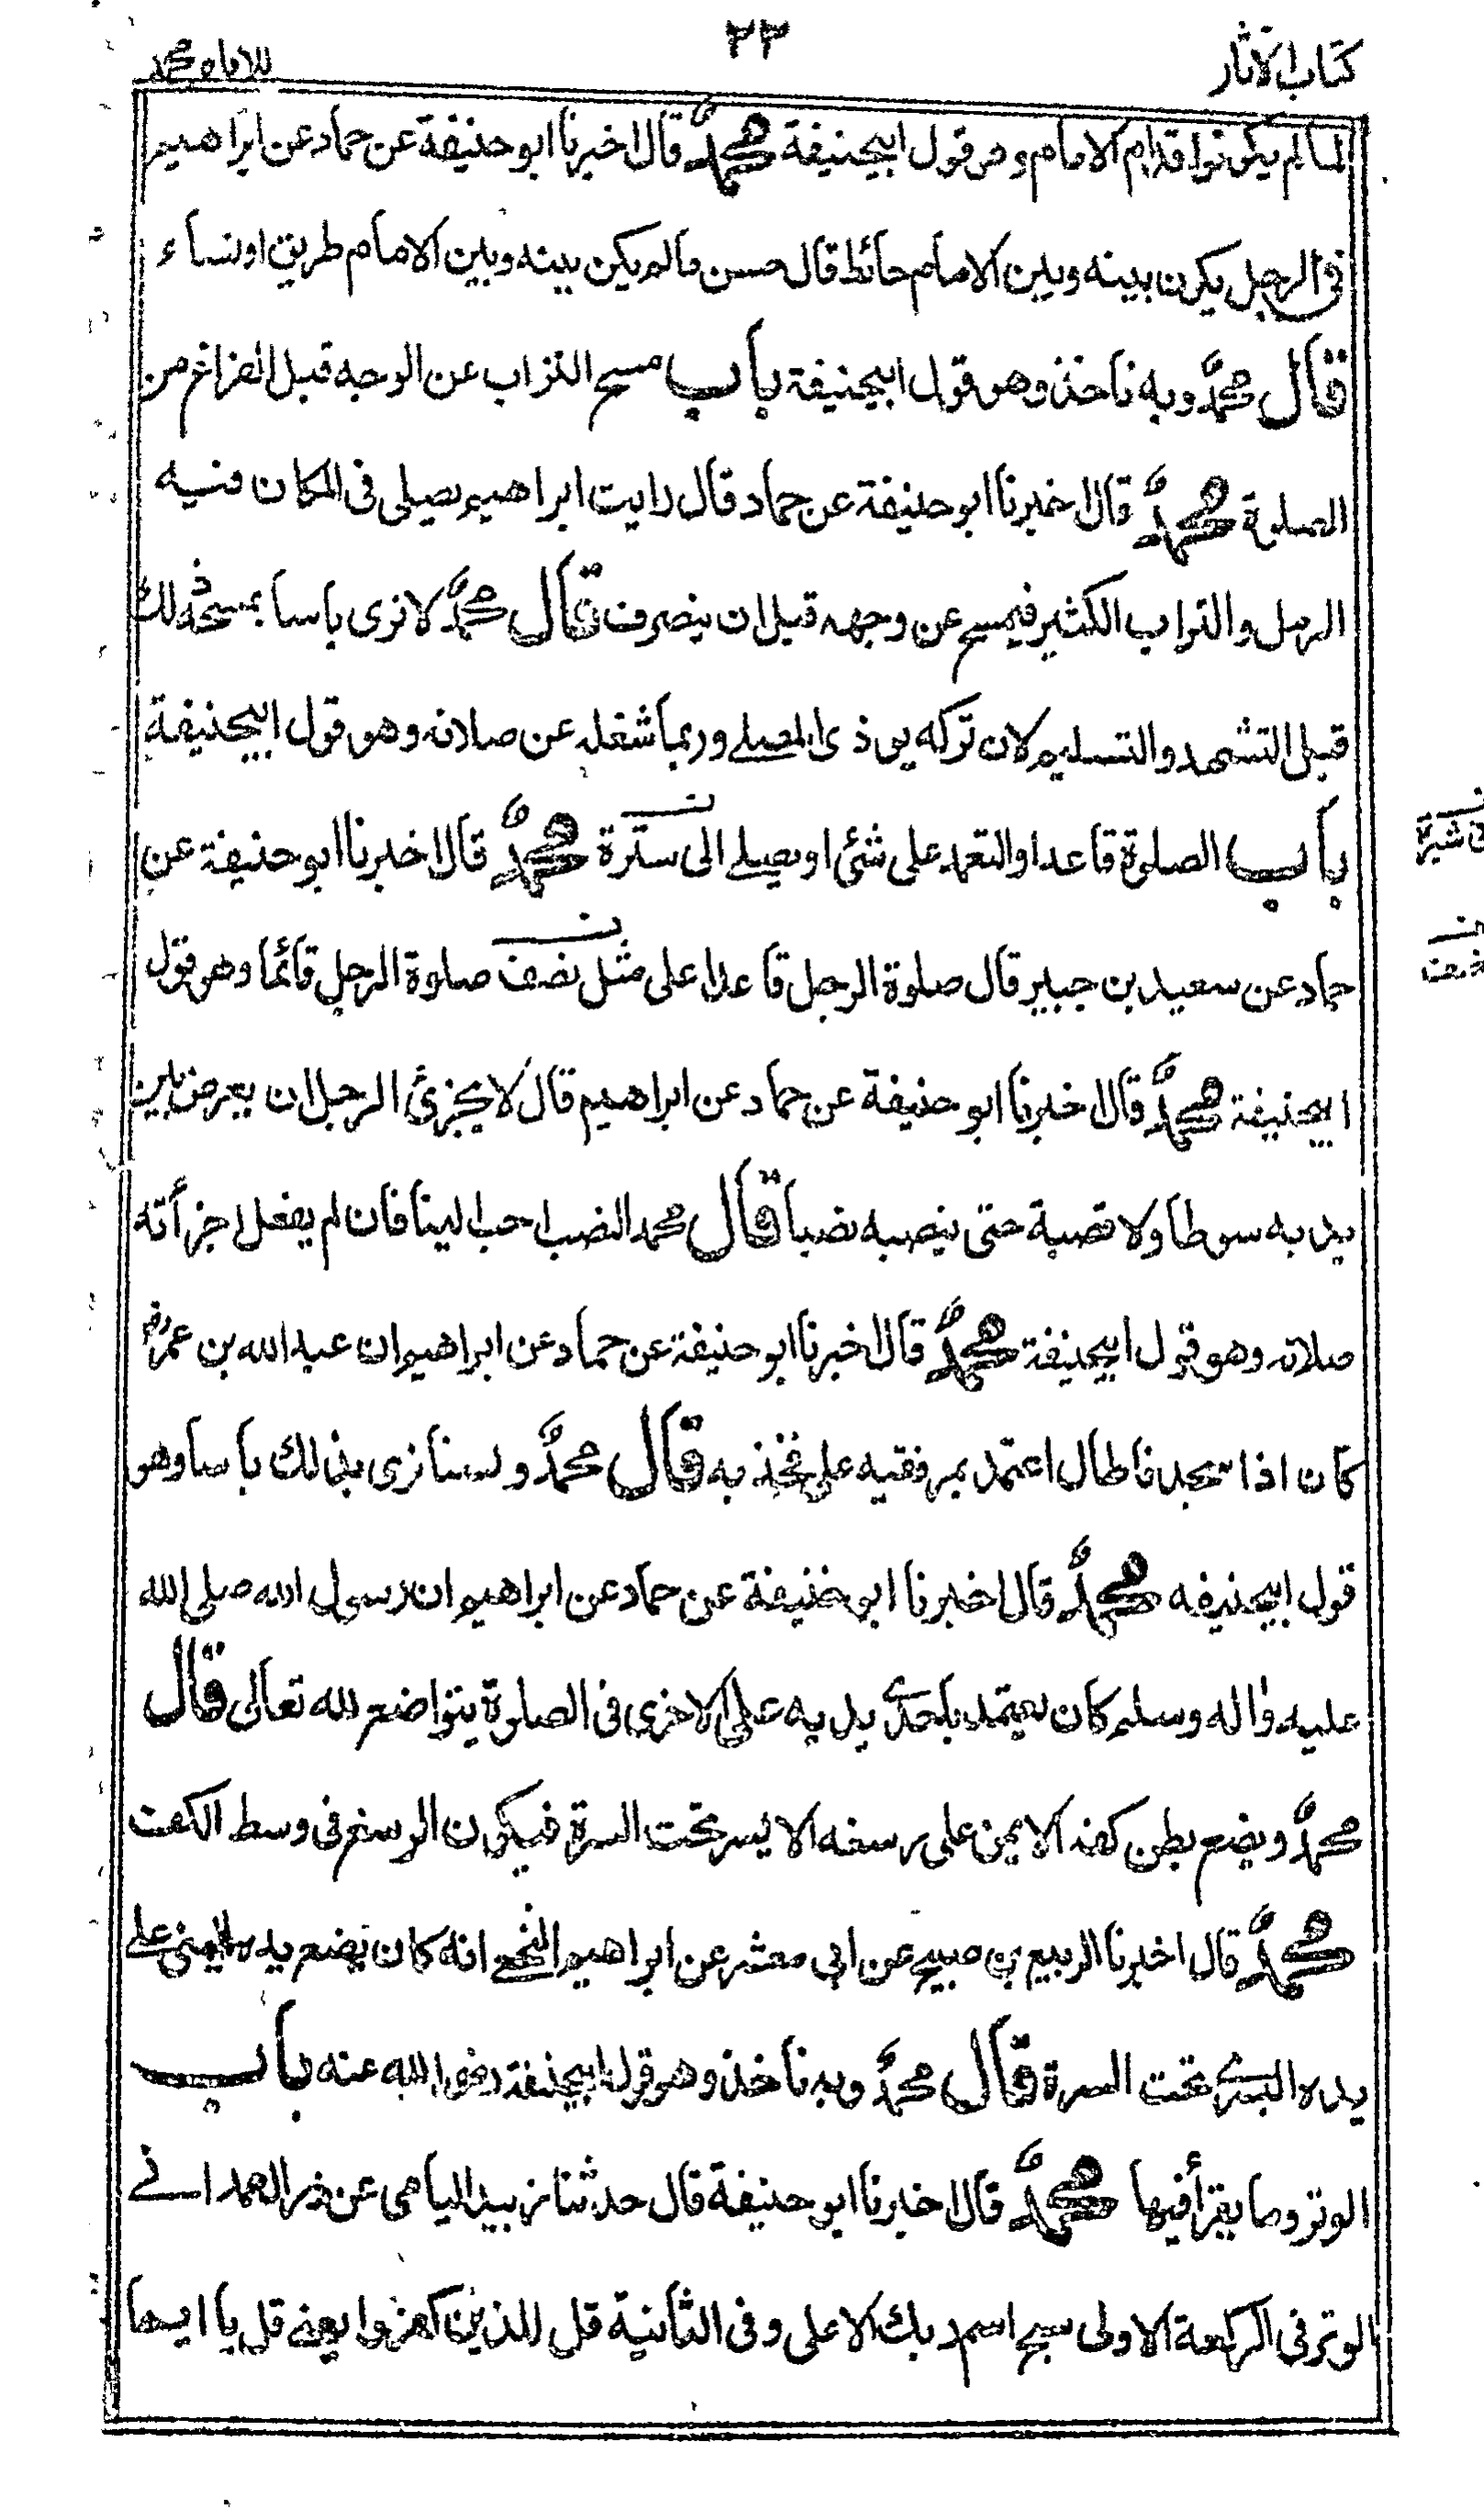 كتاب الآثار
٢٣
للامام محمد
لما لم يكونوا قدام الامام وهو قول ابيحنيفة محمدٌ قال اخبرنا ابو حنيفة عن حماد عن ابراهيم
فى الرجل يكون بينه وبين الامام حائط قال حسن مالم يكن بينه وبين الامام طريق او نساء
قال محمدٌ وبه ناخذ وهو قول ابيحنيفة باب مسح التراب عن الوجه قبل الفراغ من
الصلوة محمدٌ قال اخبرنا ابو حنيفة عن حماد قال رايت ابراهيم يصلى فى المكان فيه
الرمل والتراب الكثير فيمسح عن وجهه قبل ان ينصرف قال محمدٌ لا نرى باسا بمسحه ذلك
قبل التشهد والتسليم لان تركه يوذى المصلے وربما شغله عن صلاته وهو قول ابيحنيفة
باب الصلوة قاعدا والتعمد على شئ او يصلے الى سترة محمدٌ قال اخبرنا ابو حنيفة عن
حماد عن سعيد بن جبير قال صلوة الرجل قاعدا على مثل نصف صلوة الرجل قائما وهو قول
ابيحنيفة محمدٌ قال اخبرنا ابو حنيفة عن حماد عن ابراهيم قال لا يجزئ الرجل ان يعرض بين
يديه سوطا ولا قصبة حتى ينصبه نصبا قال محمد النصب احب الينا فان لم يفعل اجزأته
صلاته وهو قول ابيحنيفة محمدٌ قال اخبرنا ابو حنيفة عن حماد عن ابراهيم ان عبد الله بن عمرؓ
كان اذا سجد فاطال اعتمد بمرفقيه على فخذيه قال محمدٌ ولسنا نرى بذالك باسا وهو
قول ابيحنيفه محمدٌ قال اخبرنا ابو حنيفة عن حماد عن ابراهيم ان رسول الله صلى الله
عليه واٰله وسلم كان يعتمد باحدى يديه على الاخرى فى الصلوة يتواضع لله تعالى قال
محمدٌ ويضع بطن كفه الايمن على رسغه الايسر تحت السرة فيكون الرسغ فى وسط الكف
محمدٌ قال اخبرنا الربيع بن صبيح عن ابى معشر عن ابراهيم النخعے انه كان يضع يده اليمنى علے
يده اليسرے تحت السرة قال محمدٌ وبه ناخذ وهو قول ابيحنيفة رضى الله عنه باب
الوتر وما يقرأ فيها محمدٌ قال اخبرنا ابو حنيفة قال حدثنا زبيد اليامى عن ذر الهمدانے
الوتر فى الركعة الاولى سبح اسم ربك الاعلى وفى الثانية قل للذين كفروا يعنے قل يا ايها